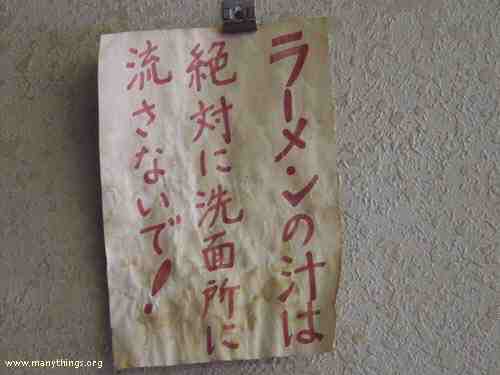 ラーメンの汁は
絶対に洗面所に
流さないで!
www.manythings.org